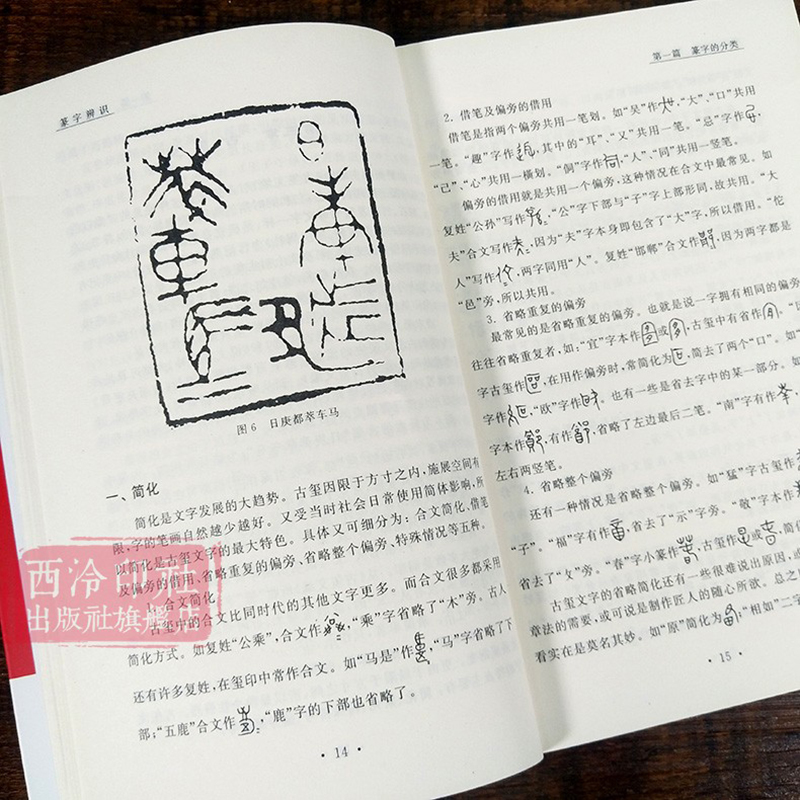 篆字辨识
图6 日庚都萃车马
一、简化
简化是文字发展的大趋势。古玺因限于方寸之内,施展空间有
限,字的笔画自然越少越好。又受当时社会日常使用简体影响,所
以简化是古玺文字的最大特色。具体又可细分为:合文简化、借笔
及偏旁的借用、省略重复的偏旁、省略整个偏旁、特殊情况等五种。
1. 合文简化
古玺中的合文比同时代的其他文字更多。而合文很多都采用
简化方式。如复姓“公乘”,合文作,“乘”字省略了“木”旁。古人
还有许多复姓,在玺印中常作合文。如“马是”作,“马”字省略了下
部;“五鹿”合文作,“鹿”字的下部也省略了。
·14·
西泠印社
出版社旗舰店
第一篇 篆字的分类
2. 借笔及偏旁的借用
借笔是指两个偏旁共用一笔划。如“吴”作,“大”、“口”共用
一笔。“趣”字作,其中的“耳”、“又”共用一笔。“忌”字作,
“己”、“心”共用一横划。“侗”字作,“人”、“同”共用一竖笔。
偏旁的借用就是共用一个偏旁,这种情况在合文中最常见。如
复姓“公孙”写作,“公”字下部与“子”字上部形同,故共用。“大
夫”合文写作,因为“夫”字本身即包含了“大”字,所以借用。“佗
人”写作,两字同用“人”。复姓“邯郸”合文作,因为两字都是
“邑”旁,所以共用。
3. 省略重复的偏旁
最常见的是省略重复的偏旁。也就是说一字拥有相同的偏旁
往往省略重复者,如:“宜”字本作或,古玺中有省作,
字古玺作,在用作偏旁时,常简化为,简去了两个“口”。如
字作,“欧”字作。也有一些是省去字中的某一部分。如
字本作,有作,省略了左边最后二笔。“南”字有作,
左右两竖笔。
4. 省略整个偏旁
还有一种情况是省略整个偏旁。如“猛”字古玺作
“子”。“福”字有作,省去了“示”字旁。“敬”字本作
省去了“攵”旁。“春”字小篆作,古玺作或,简作
古玺文字的省略简化还有一些很难说出原因,或
章法的需要,或可说是制作匠人的随心所欲。总之
看实在是莫名其妙。如“原”简化为,“相如”二字
·15·